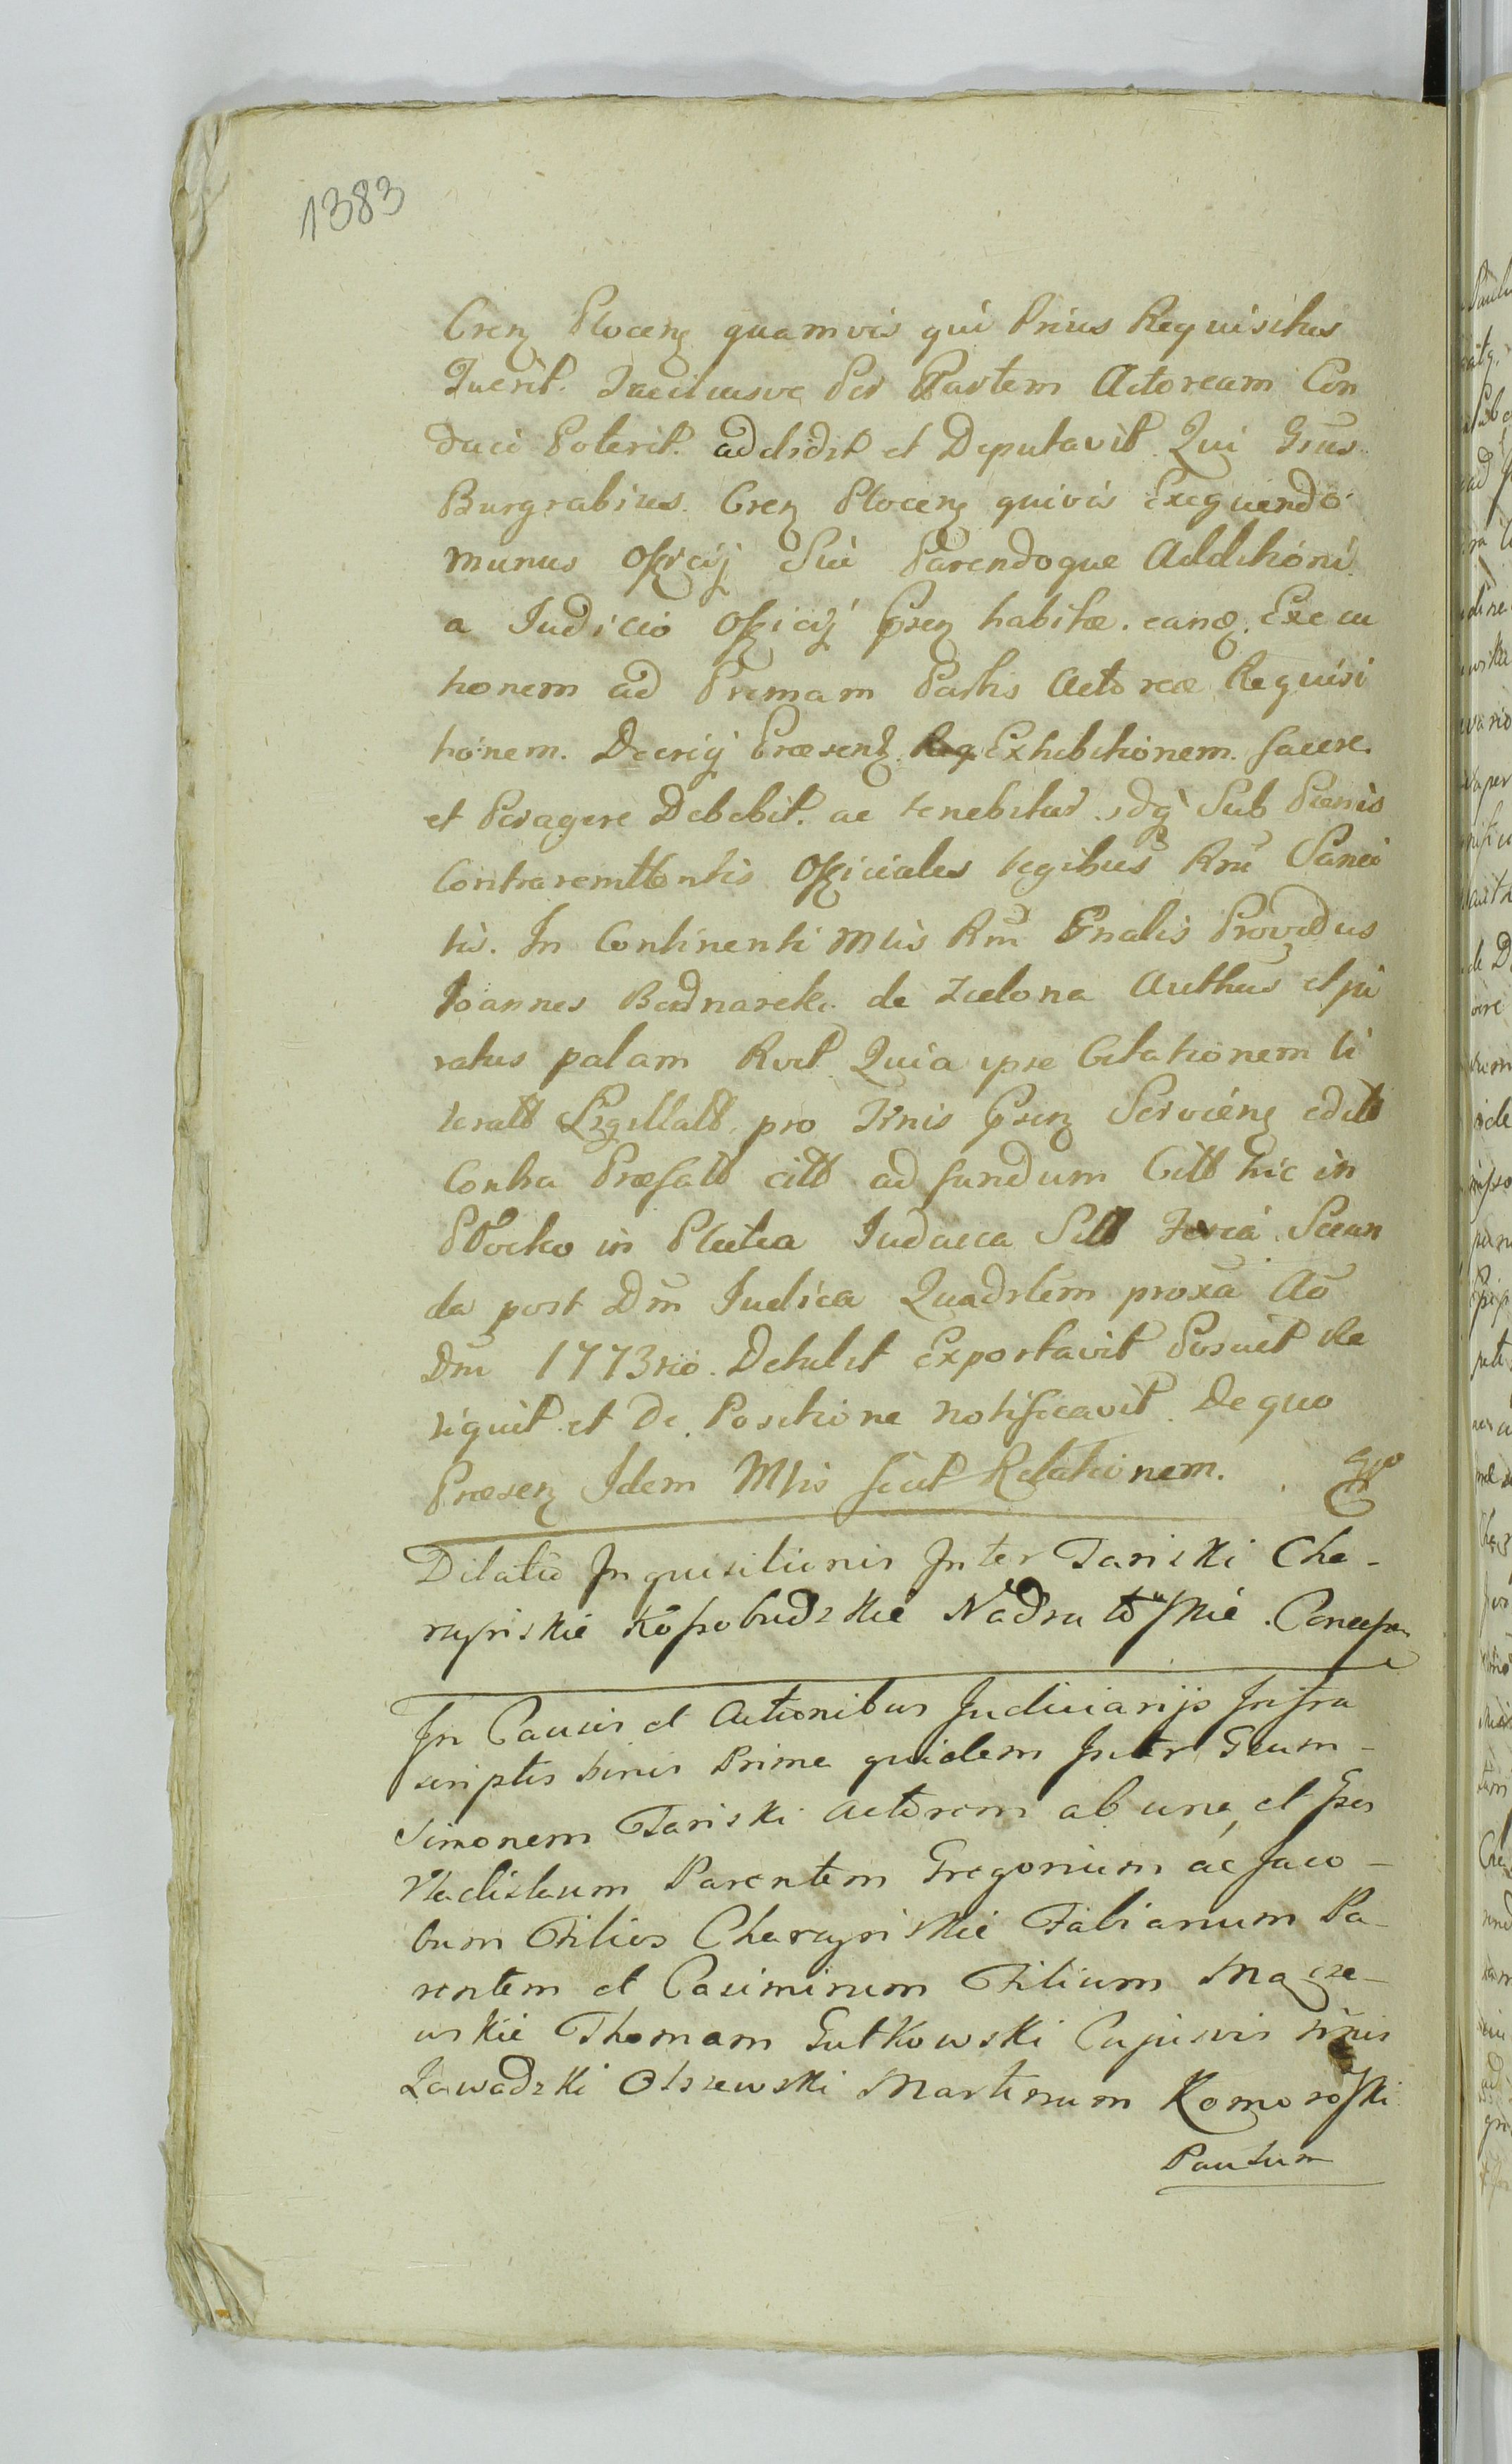 1383
Cren Plocen quamvis qui Prius Requisitus
Fuerit. Faciliusve Per Partem Actoream Con
duci Poterit. addidit et Deputavit. Qui Gnus
Burgrabius. Cren Plocen quivis Exequendo
munus Officij Sui Parendoque Additioni
a Judicio Officij Psen habitæ. eanq. Execu
tionem ad Primam Partis Actoreæ Requisi
tionem. Decrij Præsent. Exhibitionem. facere.
et Peragere Debebit. ac tenebitur idq Sub Pænis
Contraremittentis Officiales legibus Rni Sanci
tis. In Continenti Mtis Rni Gnalis Providus
Joannes Bednarek de Zielona Authus et ju
ratus palam Rvit Quia ipse Citationem li
teratt Sigillatt pro Trnis Psen Servien editt
Contra Præfatt citt ad fundum Citt hic in
Płocko in Platea Judaica Sitt Feria Secun
da post Dm Judica Quadrlem proxa Ao
Dni 1773tio. Detulit Exportavit Posuit Re
liquit et De Positione notificavit. De quo
Præsen Idem Mtis fecit Relationem.
Dilatio Inquisitionis Inter Tanski Cha-
rzyńskie Kossobudzkie Nadratowskie.
In Causis et Actionibus Judiciarijs Infra
scriptis binis Prima quidem Inter Gnum-
Simonem Tanski Actorem ab una, et Gsos
Vladislaum Parentem Gregorium ac Jaco-
bum Filios Charzyńskie Fabianum Pa-
rentem et Casimirum Filium Macze-
wskie Thomam Gutkowski Cujusvis nnis
Zawadzki Olszewski Martinum Komorowski
Paulum